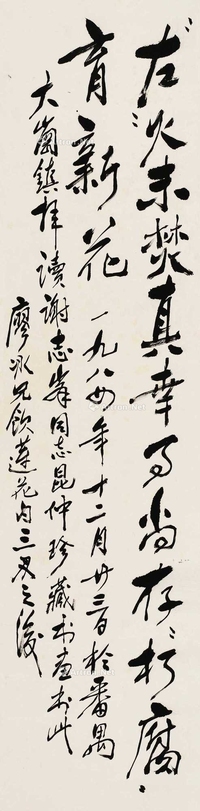 左火未焚真幸事尚存朽腐
育新花 一九八四年十二月廿三日於番禺
大崗鎮拜讀謝志峯同志昆仲珍藏书画书此
廖冰兄飲蓮花白三之後